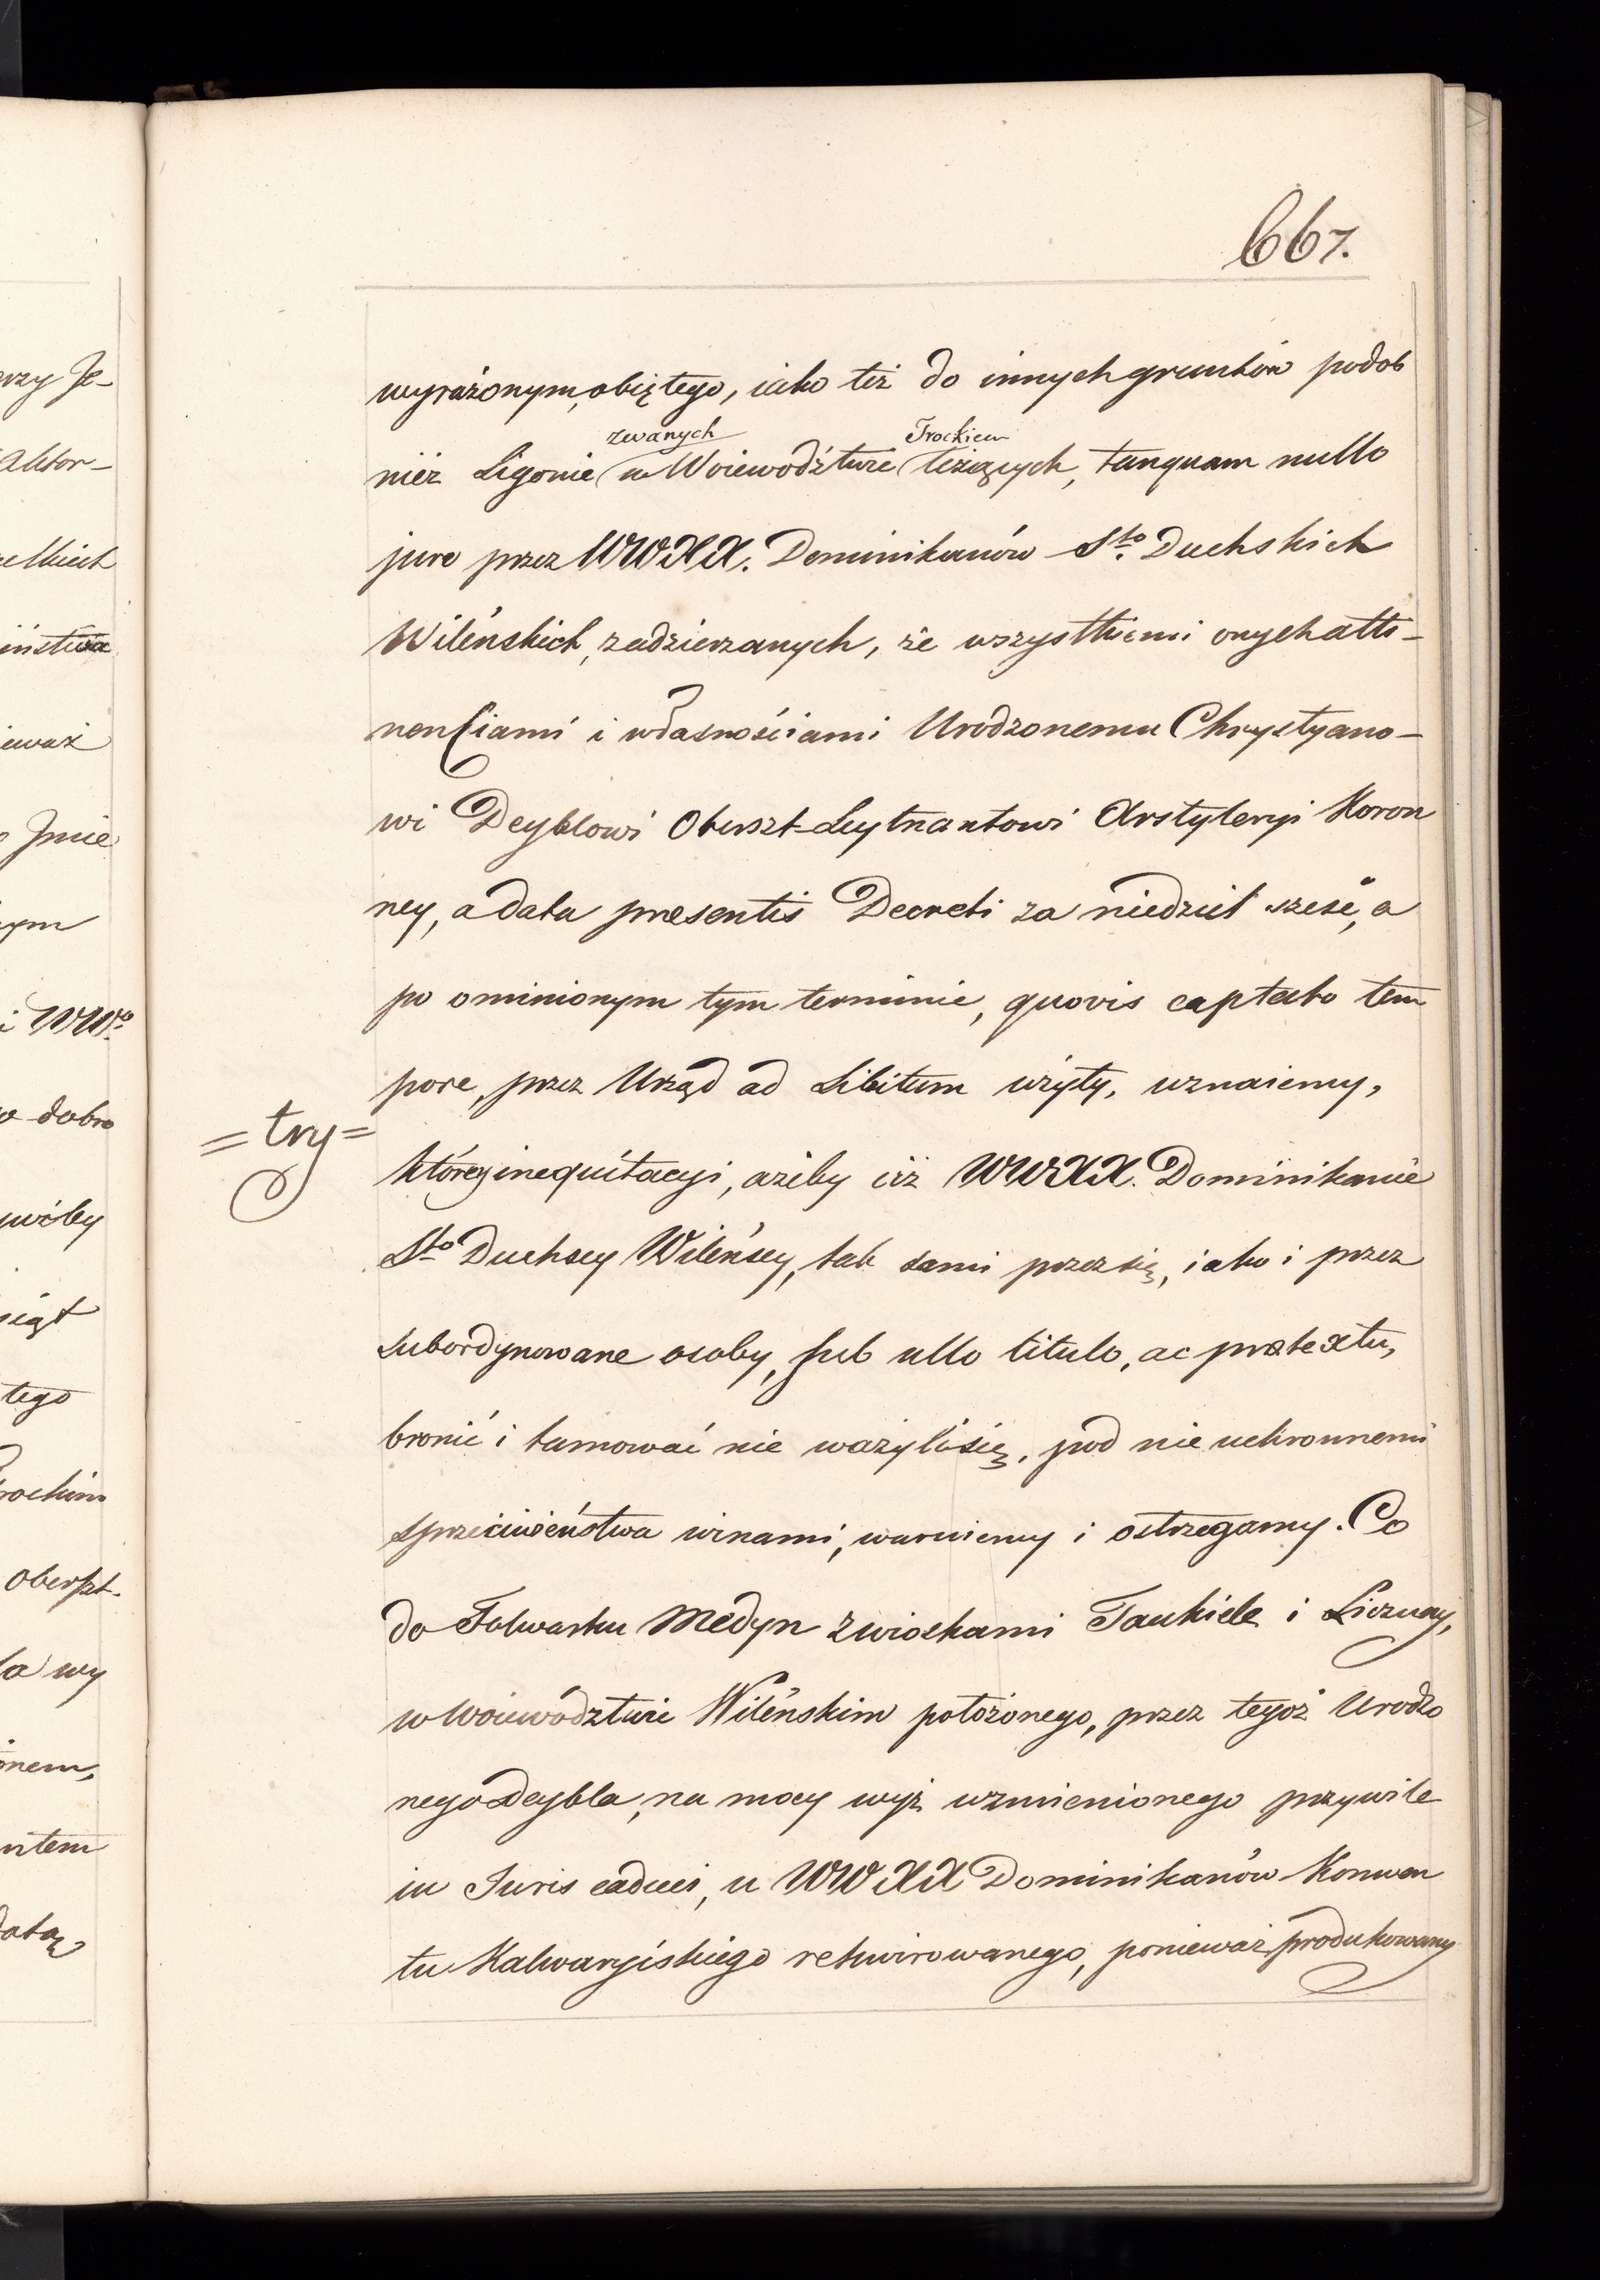 667.
wyrażonym, obiętego, iako też do innych gruntów podob
nież Ligonie zwanych w Woiewodźtwie Trockiem leżących, tanquam nullo
jure przez WWXX. Dominikanów Sto. Duchskich
Wileńskich, zadzierzanych, ze wszystkiemi onych atty-
nenciami i własnościami Urodzonemu Chrystyano-
wi Deyblowi Oberszt-Leytnantowi Arstyleryi Koron
ney, a data presentis Decreti za niedziel sześć, a
po ominionym tym terminie, quovis captato tem
pore, przez Urząd ad Libitum użyty, uznaiemy,
=try=
którey inequitacyi, ażeby iiż WWXX. Dominikanie
Sto Duchscy Wileńscy, tak sami przez się, iako i przez
subordynowane osoby, sub ullo titulo, ac prætextu,
bronić i tamować nie ważyli się, pod nieuchronnemi
sprzeciwieństwa winami, waruiemy i ostrzegamy. Co
do Folwarku Medyn z wioskami Taukiele i Liczuny,
w Woiewództwie Wileńskim położonego, przez tegoż Urodzo
nego Deybla, na mocy wyż wzmienionego przywile
iu Juris caduci, u WWXX Dominikanów Konwen
tu Kalwaryiskiego rekwirowanego, ponieważ produkowany
erzy Je-
Aktor-
ieważ
Jmie
ym
i WWo
o dobro
tego
Oberszt-
ła wy
onem,
ntem
datą